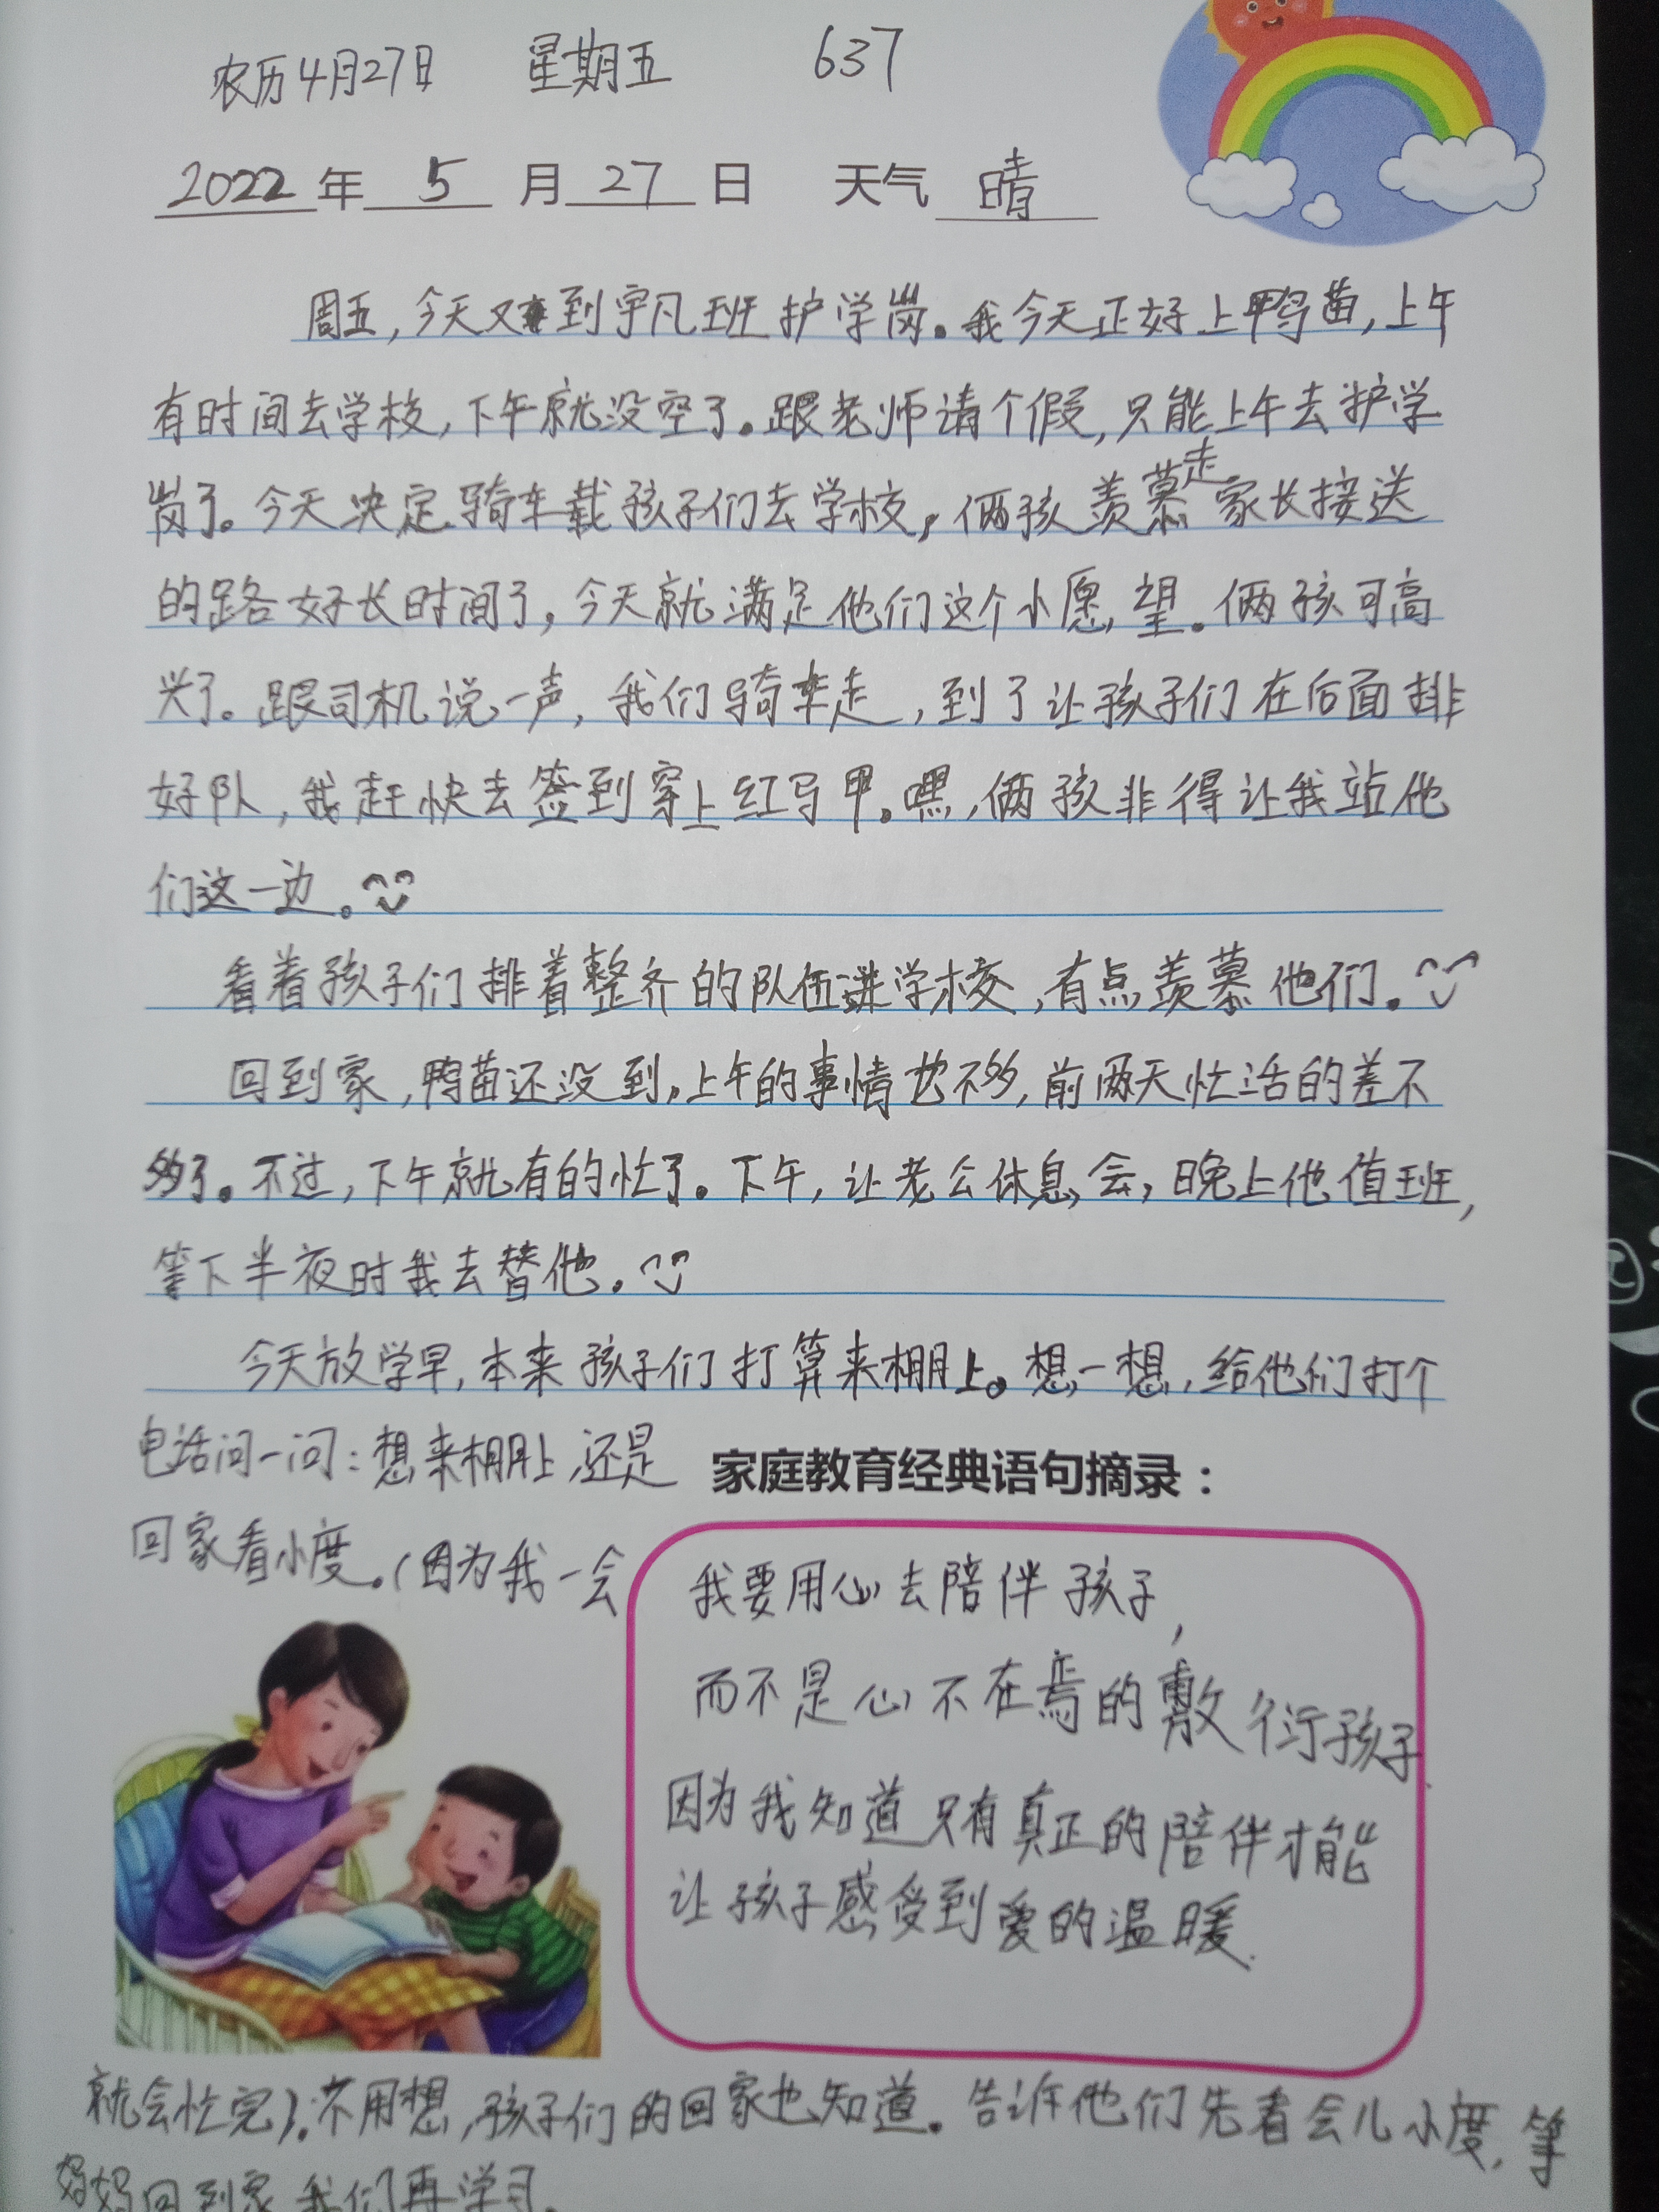 农历4月27日 星期五 637
2022年 5 月 27 日 天气 晴
周五，今天又到宇凡班护学岗。我今天正好上鸭苗，上午
有时间去学校，下午就没空了。跟老师请个假，只能上午去护学
岗了。今天决定骑车载孩子们去学校，俩孩羡慕走家长接送
的路好长时间了，今天就满足他们这个小愿望。俩孩可高
兴了。跟司机说一声，我们骑车走，到了让孩子们在后面排
好队，我赶快去签到穿上红马甲。嘿，俩孩非得让我站他
们这一边。
看着孩子们排着整齐的队伍进学校，有点羡慕他们。
回到家，鸭苗还没到，上午的事情也不多，前两天忙活的差不
多了。不过，下午就有的忙了。下午，让老公休息会，晚上他值班，
等下半夜时我去替他。
今天放学早，本来孩子们打算来棚上。想一想，给他们打个
电话问一问：想来棚上，还是
回家看小度。（因为我一会
家庭教育经典语句摘录：
我要用心去陪伴孩子，
而不是心不在焉的敷衍孩子.
因为我知道只有真正的陪伴才能
让孩子感受到爱的温暖.
就会忙完）.不用想，孩子们的回家也知道。告诉他们先看会儿小度，等
妈妈回到家，我们再学习.